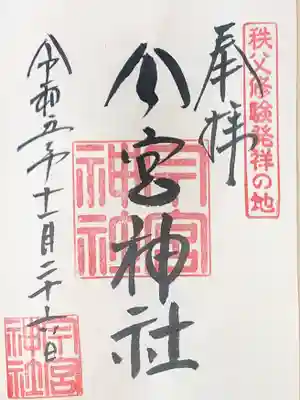 秩父修験発祥の地
奉拝
今宮神社
今宮神社
令和五年十一月二十六日
今宮神社